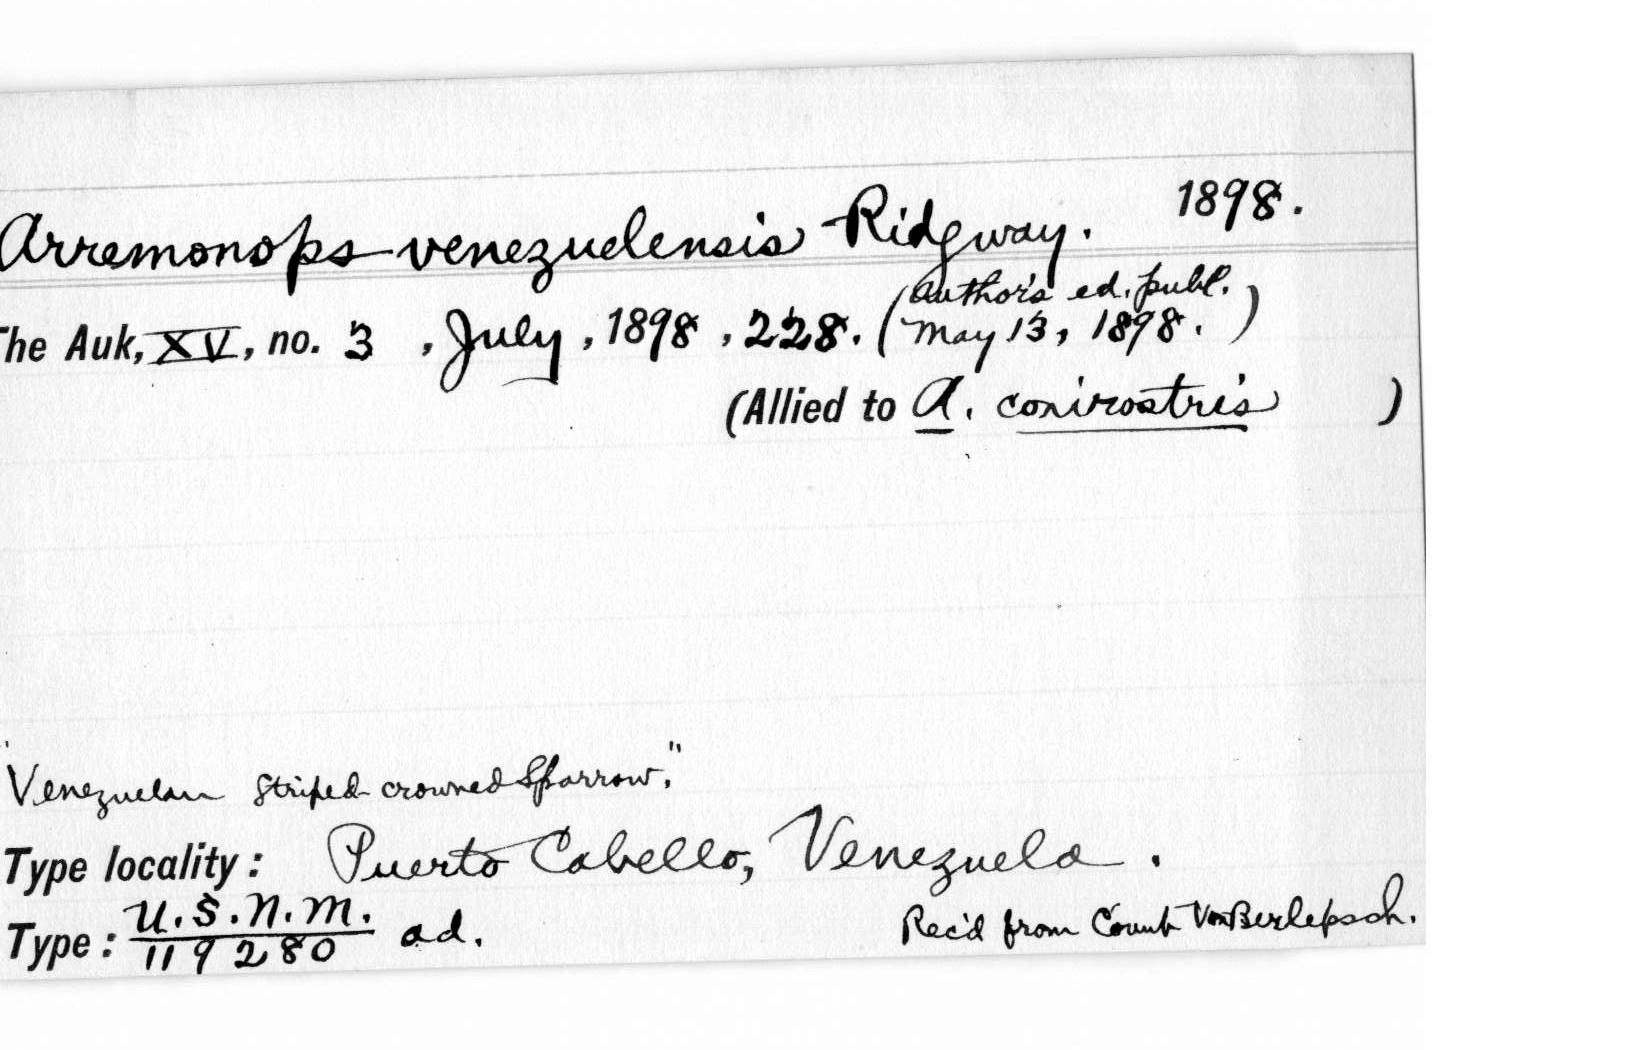 Arremonops venezuelensis Ridgway. 1898.
The Auk, XV, no. 3, July, 1898, 228. (Author's ed. publ. May 13, 1898.)
(Allied to A. conirostris )
"Venezuelan Striped-crowned Sparrow."
Type locality: Puerto Cabello, Venezuela.
Type: U.S.N.M. 119280 ad. Rec'd from Count Von Berlepsch.